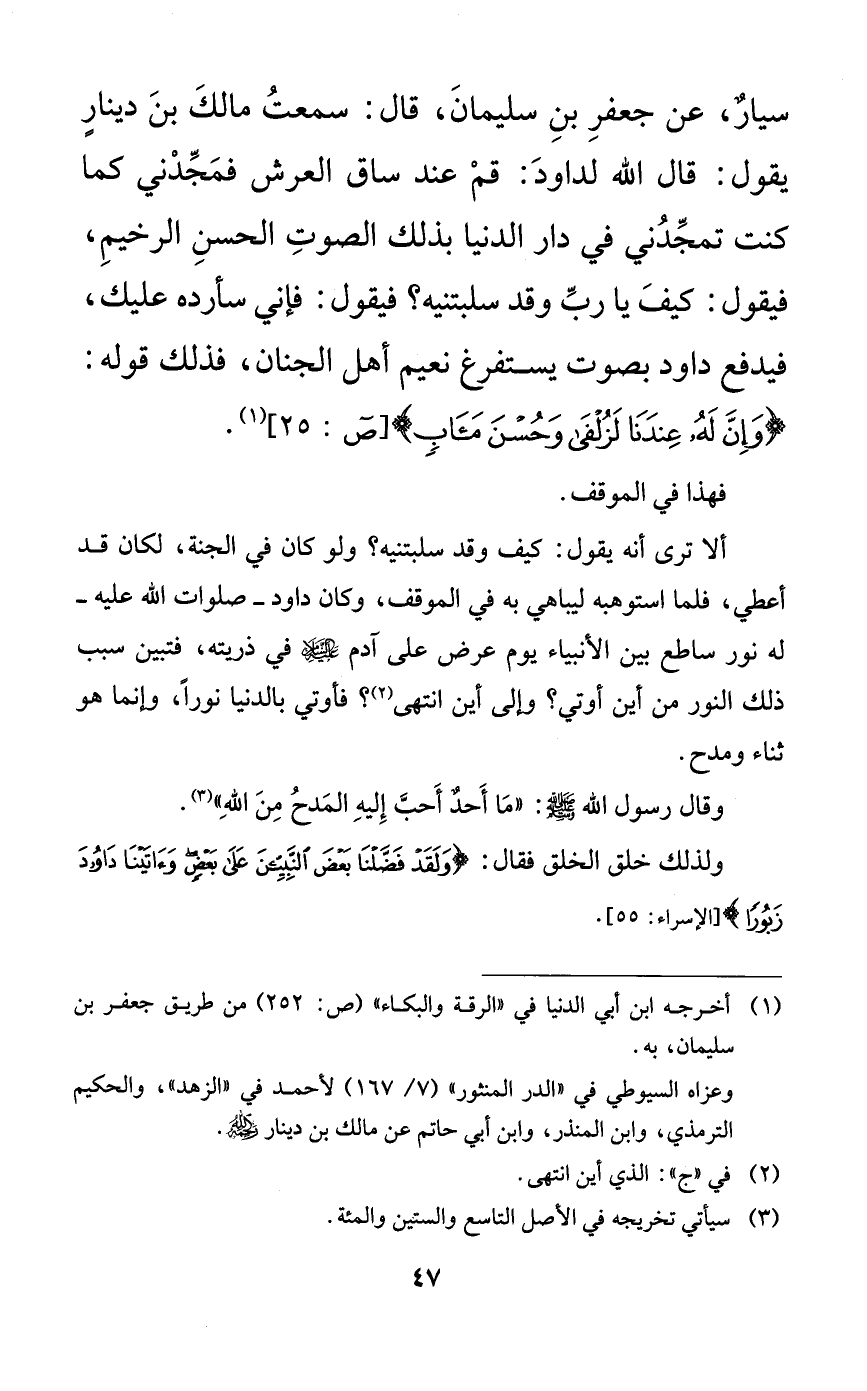 سيارٌ، عن جعفرِ بنِ سليمانَ، قال: سمعتُ مالكَ بنَ دينارٍ
يقول: قال الله لداودَ: قمْ عند ساق العرش فمَجِّدْني كما
كنت تمجِّدُني في دار الدنيا بذلك الصوتِ الحسنِ الرخيمِ،
فيقول: كيفَ يا ربِّ وقد سلبتنيه؟ فيقول: فإني سأرده عليك،
فيدفع داود بصوت يستفرغ نعيم أهل الجنان، فذلك قوله:
﴿وَإِنَّ لَهُۥ عِندَنَا لَزُلْفَىٰ وَحُسْنَ مَـَٔابٍ﴾[صٓ : ٢٥](١).
فهذا في الموقف.
ألا ترى أنه يقول: كيف وقد سلبتنيه؟ ولو كان في الجنة، لكان قد
أعطي، فلما استوهبه ليباهي به في الموقف، وكان داود ـ صلوات الله عليه ـ
له نور ساطع بين الأنبياء يوم عرض على آدم عليه السلام في ذريته، فتبين سبب
ذلك النور من أين أوتي؟ وإلى أين انتهى(٢)؟ فأوتي بالدنيا نوراً، وإنما هو
ثناء ومدح.
وقال رسول الله ﷺ: «مَا أَحدٌ أَحبَّ إِليهِ المَدحُ مِنَ اللهِ»(٣).
ولذلك خلق الخلق فقال: ﴿وَلَقَدْ فَضَّلْنَا بَعْضَ ٱلنَّبِيِّـۧنَ عَلَىٰ بَعْضٍۖ وَءَاتَيْنَا دَاوُۥدَ
زَبُورًا﴾[الإسراء: ٥٥].
(١) أخرجه ابن أبي الدنيا في «الرقة والبكاء» (ص: ٢٥٢) من طريق جعفر بن
سليمان، به.
وعزاه السيوطي في «الدر المنثور» (٧/ ١٦٧) لأحمد في «الزهد»، والحكيم
الترمذي، وابن المنذر، وابن أبي حاتم عن مالك بن دينار رحمه الله.
(٢) في «ج»: الذي أين انتهى.
(٣) سيأتي تخريجه في الأصل التاسع والستين والمئة.
٤٧